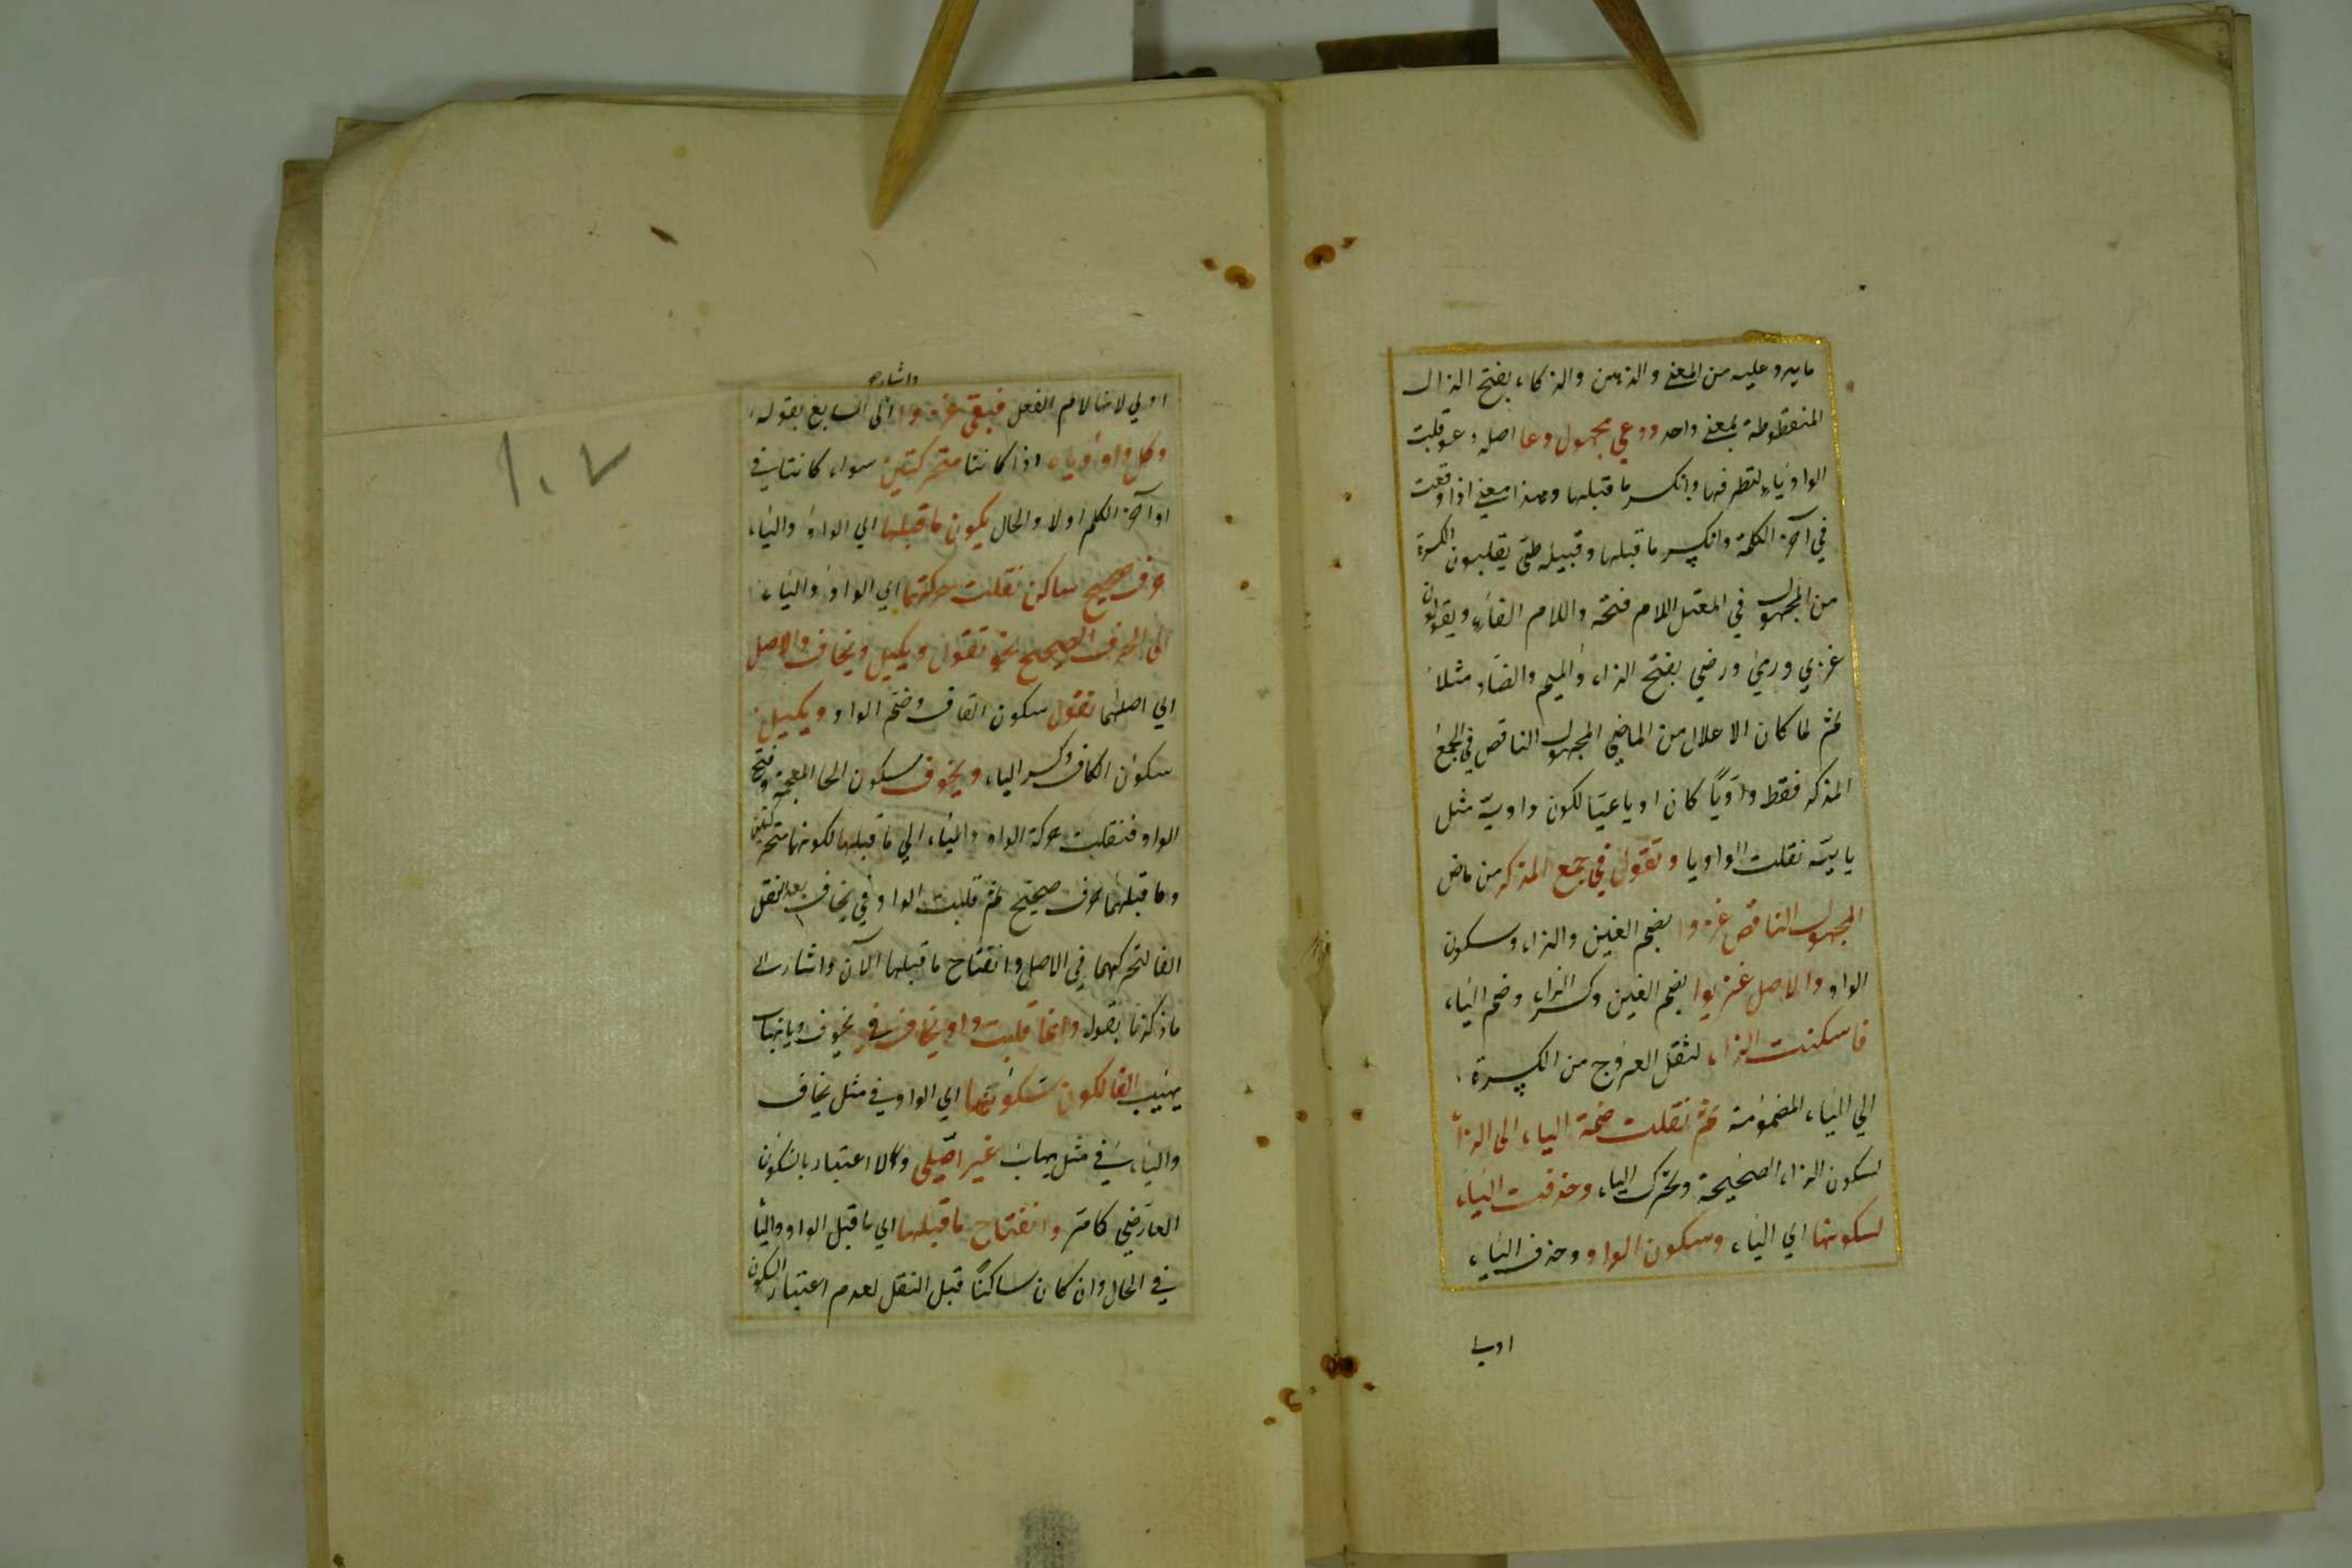 ما يرد عليه من المعنى والذهن والذكاء بفتح الذال
المنقوطة بمعنى واحد ودعي مجهول دعا اصله دعو قلبت
الواو ياء لتطرفها وانكسر ما قبلها وهذا معنى اذا وقعت
في آخر الكلمة وانكسر ما قبلها وقبيله طي يقلبون الكسرة
من المجهول في المعتل اللام فتحة واللام الفاء ويقولون
غزي ورمي ورضي بفتح الزاء والميم والضاد مثلا
ثم لما كان الاعلال من الماضي المجهول الناقص في الجمع
المذكر فقط واويا كان او يائيا لكون واوية مثل
يايية نقلت الواو يا وتقول في جمع المذكر من ماض
المجهول الناقص غزوا بضم الغين والزاء وسكون
الواو والاصل غزيوا بضم الغين وكسر الزاء وضم الياء
فاسكنت الزاء لثقل الخروج من الكسرة
الي الياء المضمومة ثم نقلت ضمة الياء الى الزاء
لسكون الزاء الصحيحة وتحرك الياء وحذفت الياء
لسكونها اي الياء وسكون الواو وحذف الياء
اولي
واشار
اولي لانها لام الفعل فبقي غزوا الى السابع بقوله
وكل واو وياء اذا كانتا متحركتين سواء كانتا في
او آخر الكلم اولا والحال يكون ما قبلها اي الواو والياء
حرف صحيح ساكن نقلت حركتها اي الواو والياء
الى الحرف الصحيح نحو تقول ويكيل ويخاف والاصل
اي اصلها تقول سكون القاف وضم الواو ويكيل
سكون الكاف وكسر الياء ويخوف سكون الخا المعجمة وفتح
الواو فنقلت حركة الواو والياء الي ما قبلها لكونها متحركتين
وما قبلهما حرف صحيح ثم قلبت الواو في يخاف بعد النقل
الفا لتحركهما في الاصل وانفتاح ما قبلها الآن واشار الى
ما ذكرنا بقوله وانما قلبت واو يخاف في يخوف وياء يهاب
يهيب الفا لكون سكونها اي الواو في مثل يخاف
والياء في مثل يهاب غير اصلي ولا اعتبار بالسكون
العارضي كما مر وانفتاح ما قبلها اي ما قبل الواو والياء
في الحال وان كان ساكنا قبل النقل لعدم اعتبار السكون